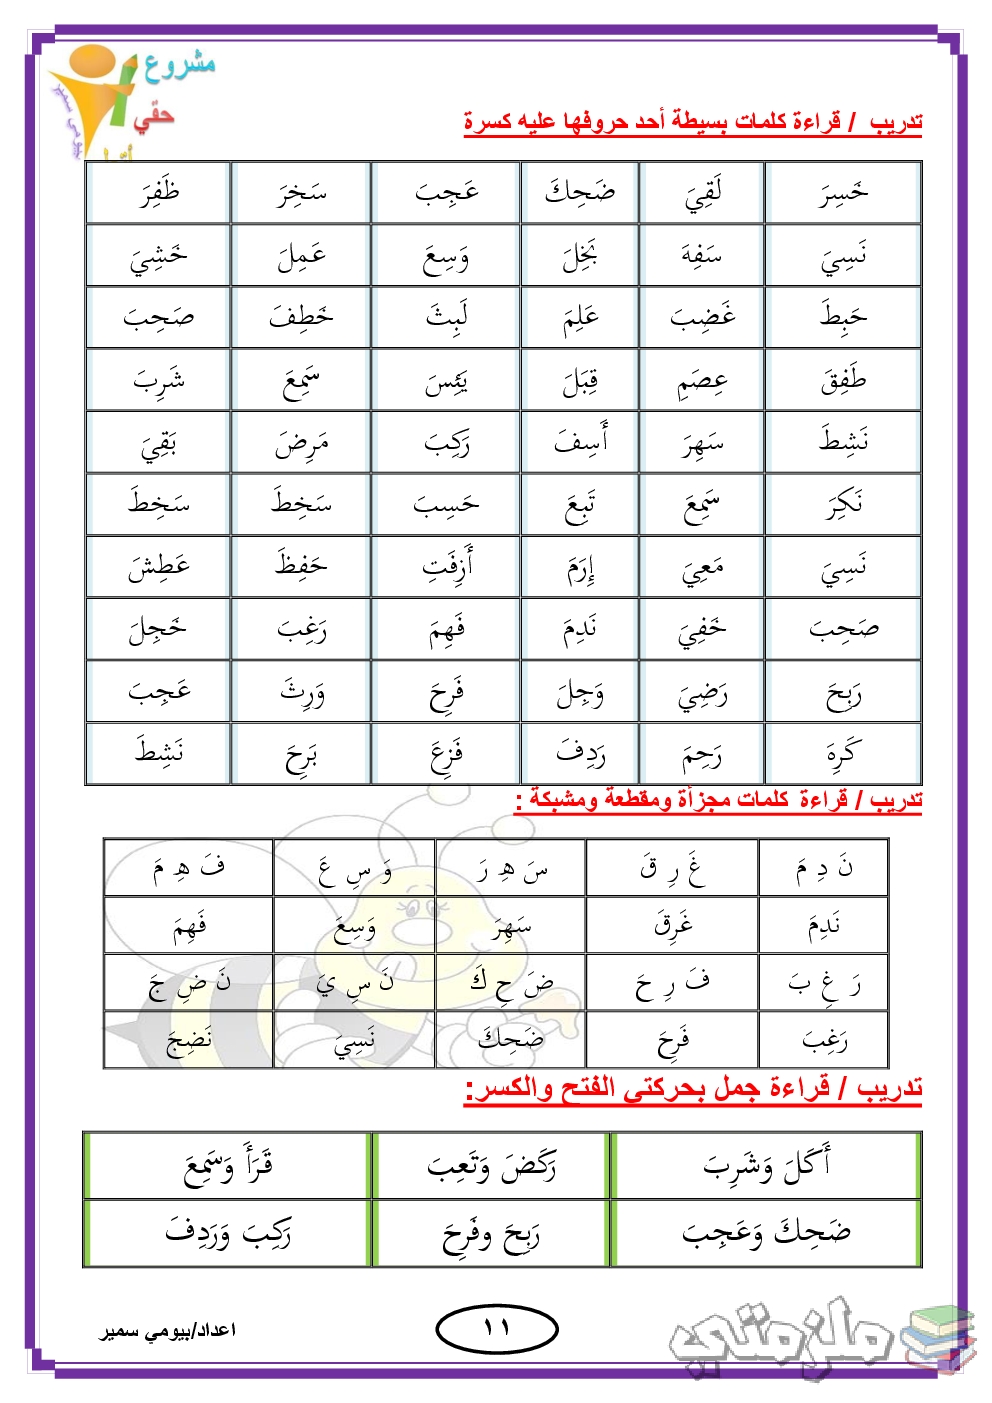 مشروع
حقي
تدريب / قراءة كلمات بسيطة أحد حروفها عليه كسرة
خَسِرَ لَقِيَ ضَحِكَ عَجِبَ سَخِرَ ظَفِرَ
نَسِيَ سَفِهَ بَخِلَ وَسِعَ عَمِلَ خَشِيَ
حَبِطَ غَضِبَ عَلِمَ لَبِثَ خَطِفَ صَحِبَ
طَفِقَ عِصَمِ قِبَلَ يَئِسَ سَمِعَ شَرِبَ
نَشِطَ سَهِرَ أَسِفَ رَكِبَ مَرِضَ بَقِيَ
نَكِرَ سَمِعَ تَبِعَ حَسِبَ سَخِطَ سَخِطَ
نَسِيَ مَعِيَ إِرَمَ أَزِفَتِ حَفِظَ عَطِشَ
صَحِبَ خَفِيَ نَدِمَ فَهِمَ رَغِبَ خَجِلَ
رَبِحَ رَضِيَ وَجِلَ فَرِحَ وَرِثَ عَجِبَ
كَرِهَ رَحِمَ رَدِفَ فَزِعَ بَرِحَ نَشِطَ
تدريب / قراءة كلمات مجزأة ومقطعة ومشبكة :
نَ دِ مَ غَ رِ قَ سَ هِ رَ وَ سِ عَ فَ هِ مَ
نَدِمَ غَرِقَ سَهِرَ وَسِعَ فَهِمَ
رَ غِ بَ فَ رِ حَ ضَ حِ كَ نَ سِ يَ نَ ضِ جَ
رَغِبَ فَرِحَ ضَحِكَ نَسِيَ نَضِجَ
تدريب / قراءة جمل بحركتي الفتح والكسر:
أَكَلَ وَشَرِبَ رَكَضَ وَتَعِبَ قَرَأَ وَسَمِعَ
ضَحِكَ وَعَجِبَ رَبِحَ وفَرِحَ رَكِبَ وَرَدِفَ
اعداد/بيومي سمير ١١ ملزمتي